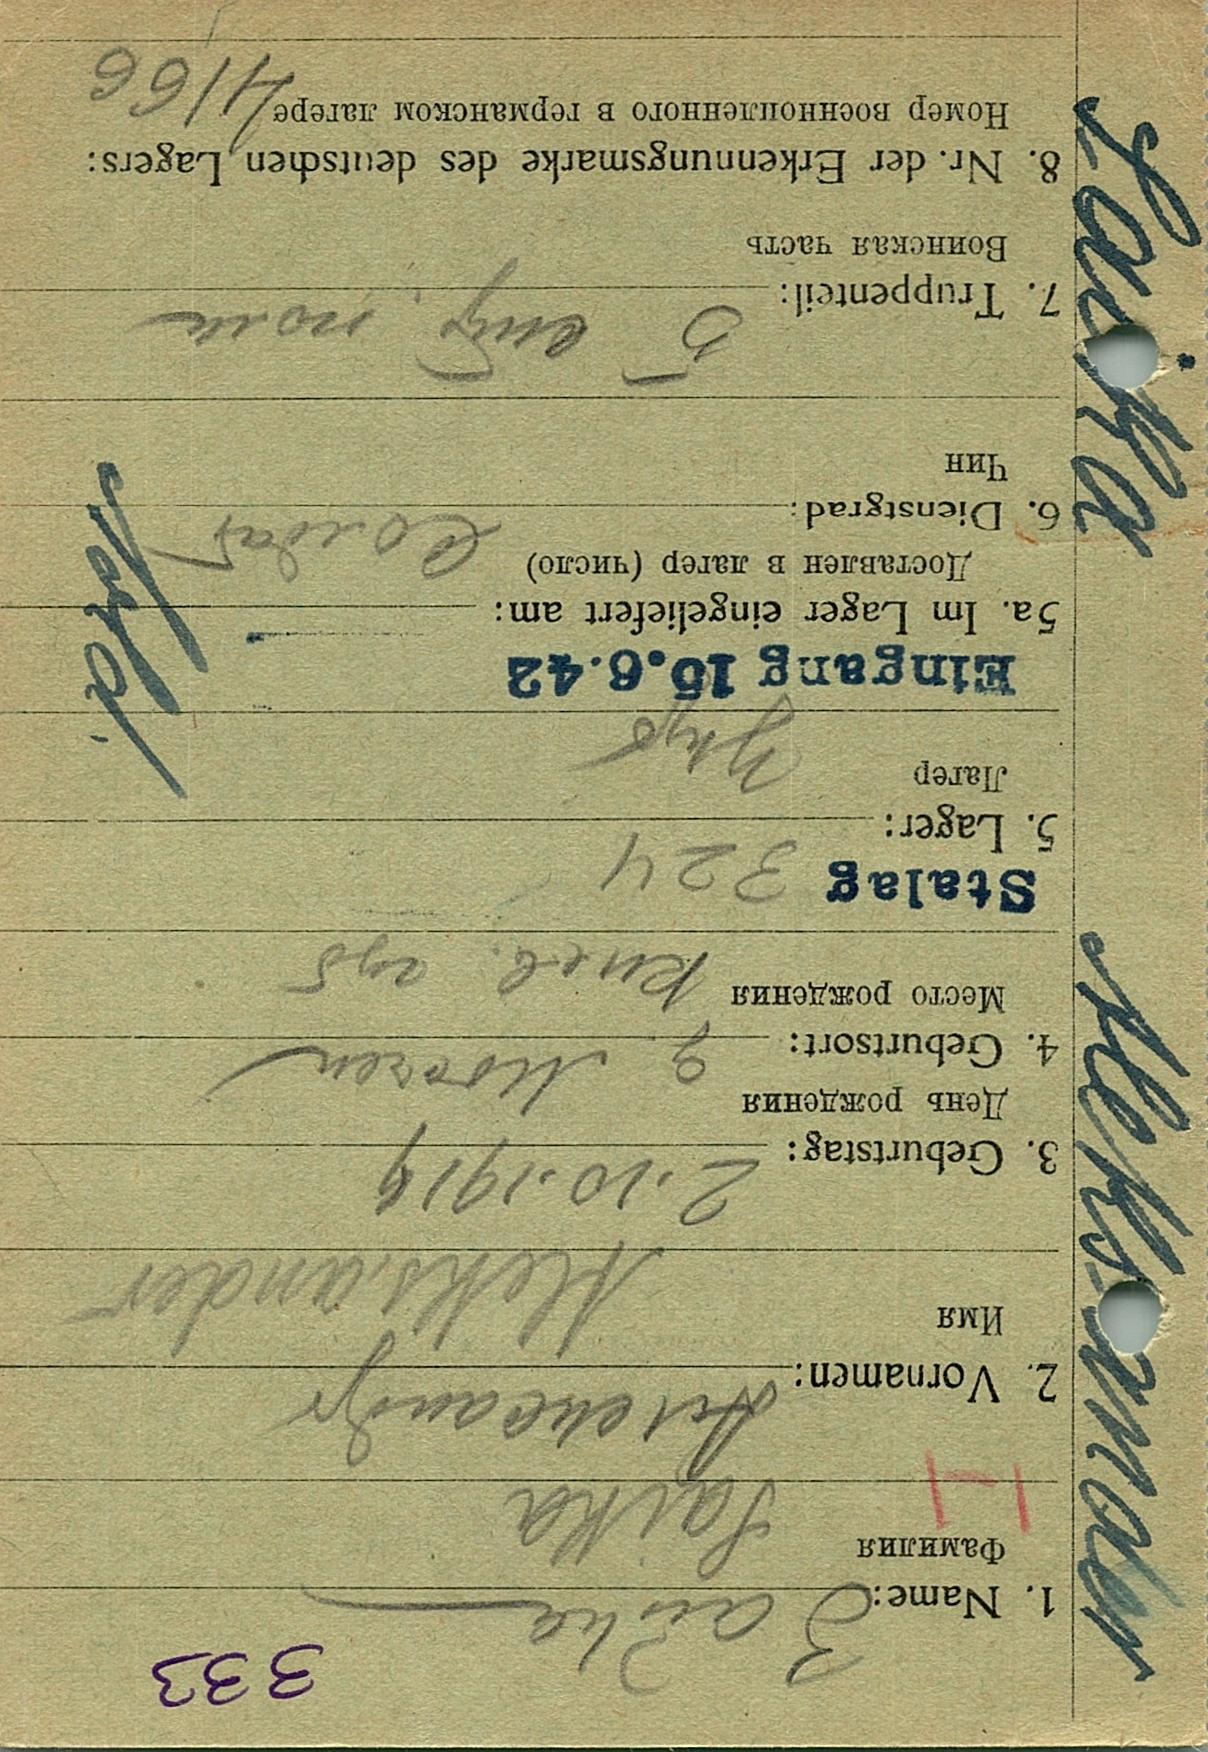 333
1. Name: Зайка
Фамилия Saika
H
2. Vornamen: Александр
Имя Aleksander
3. Geburtstag: 2.10.1919
День рождения
4. Geburtsort:
Место рождения Киев. губ
Stalag 324
5. Lager:
Лагер
Eingang 15.6.42
5a. Im Lager eingeliefert am:
Доставлен в лагер (число)
6. Dienstgrad: Солдат
Чин
Sold.
7. Truppenteil: 5
Воинская часть
8. Nr. der Erkennungsmarke des deutschen Lagers:
Номер военнопленного в германском лагере 4166
Saika Aleksander